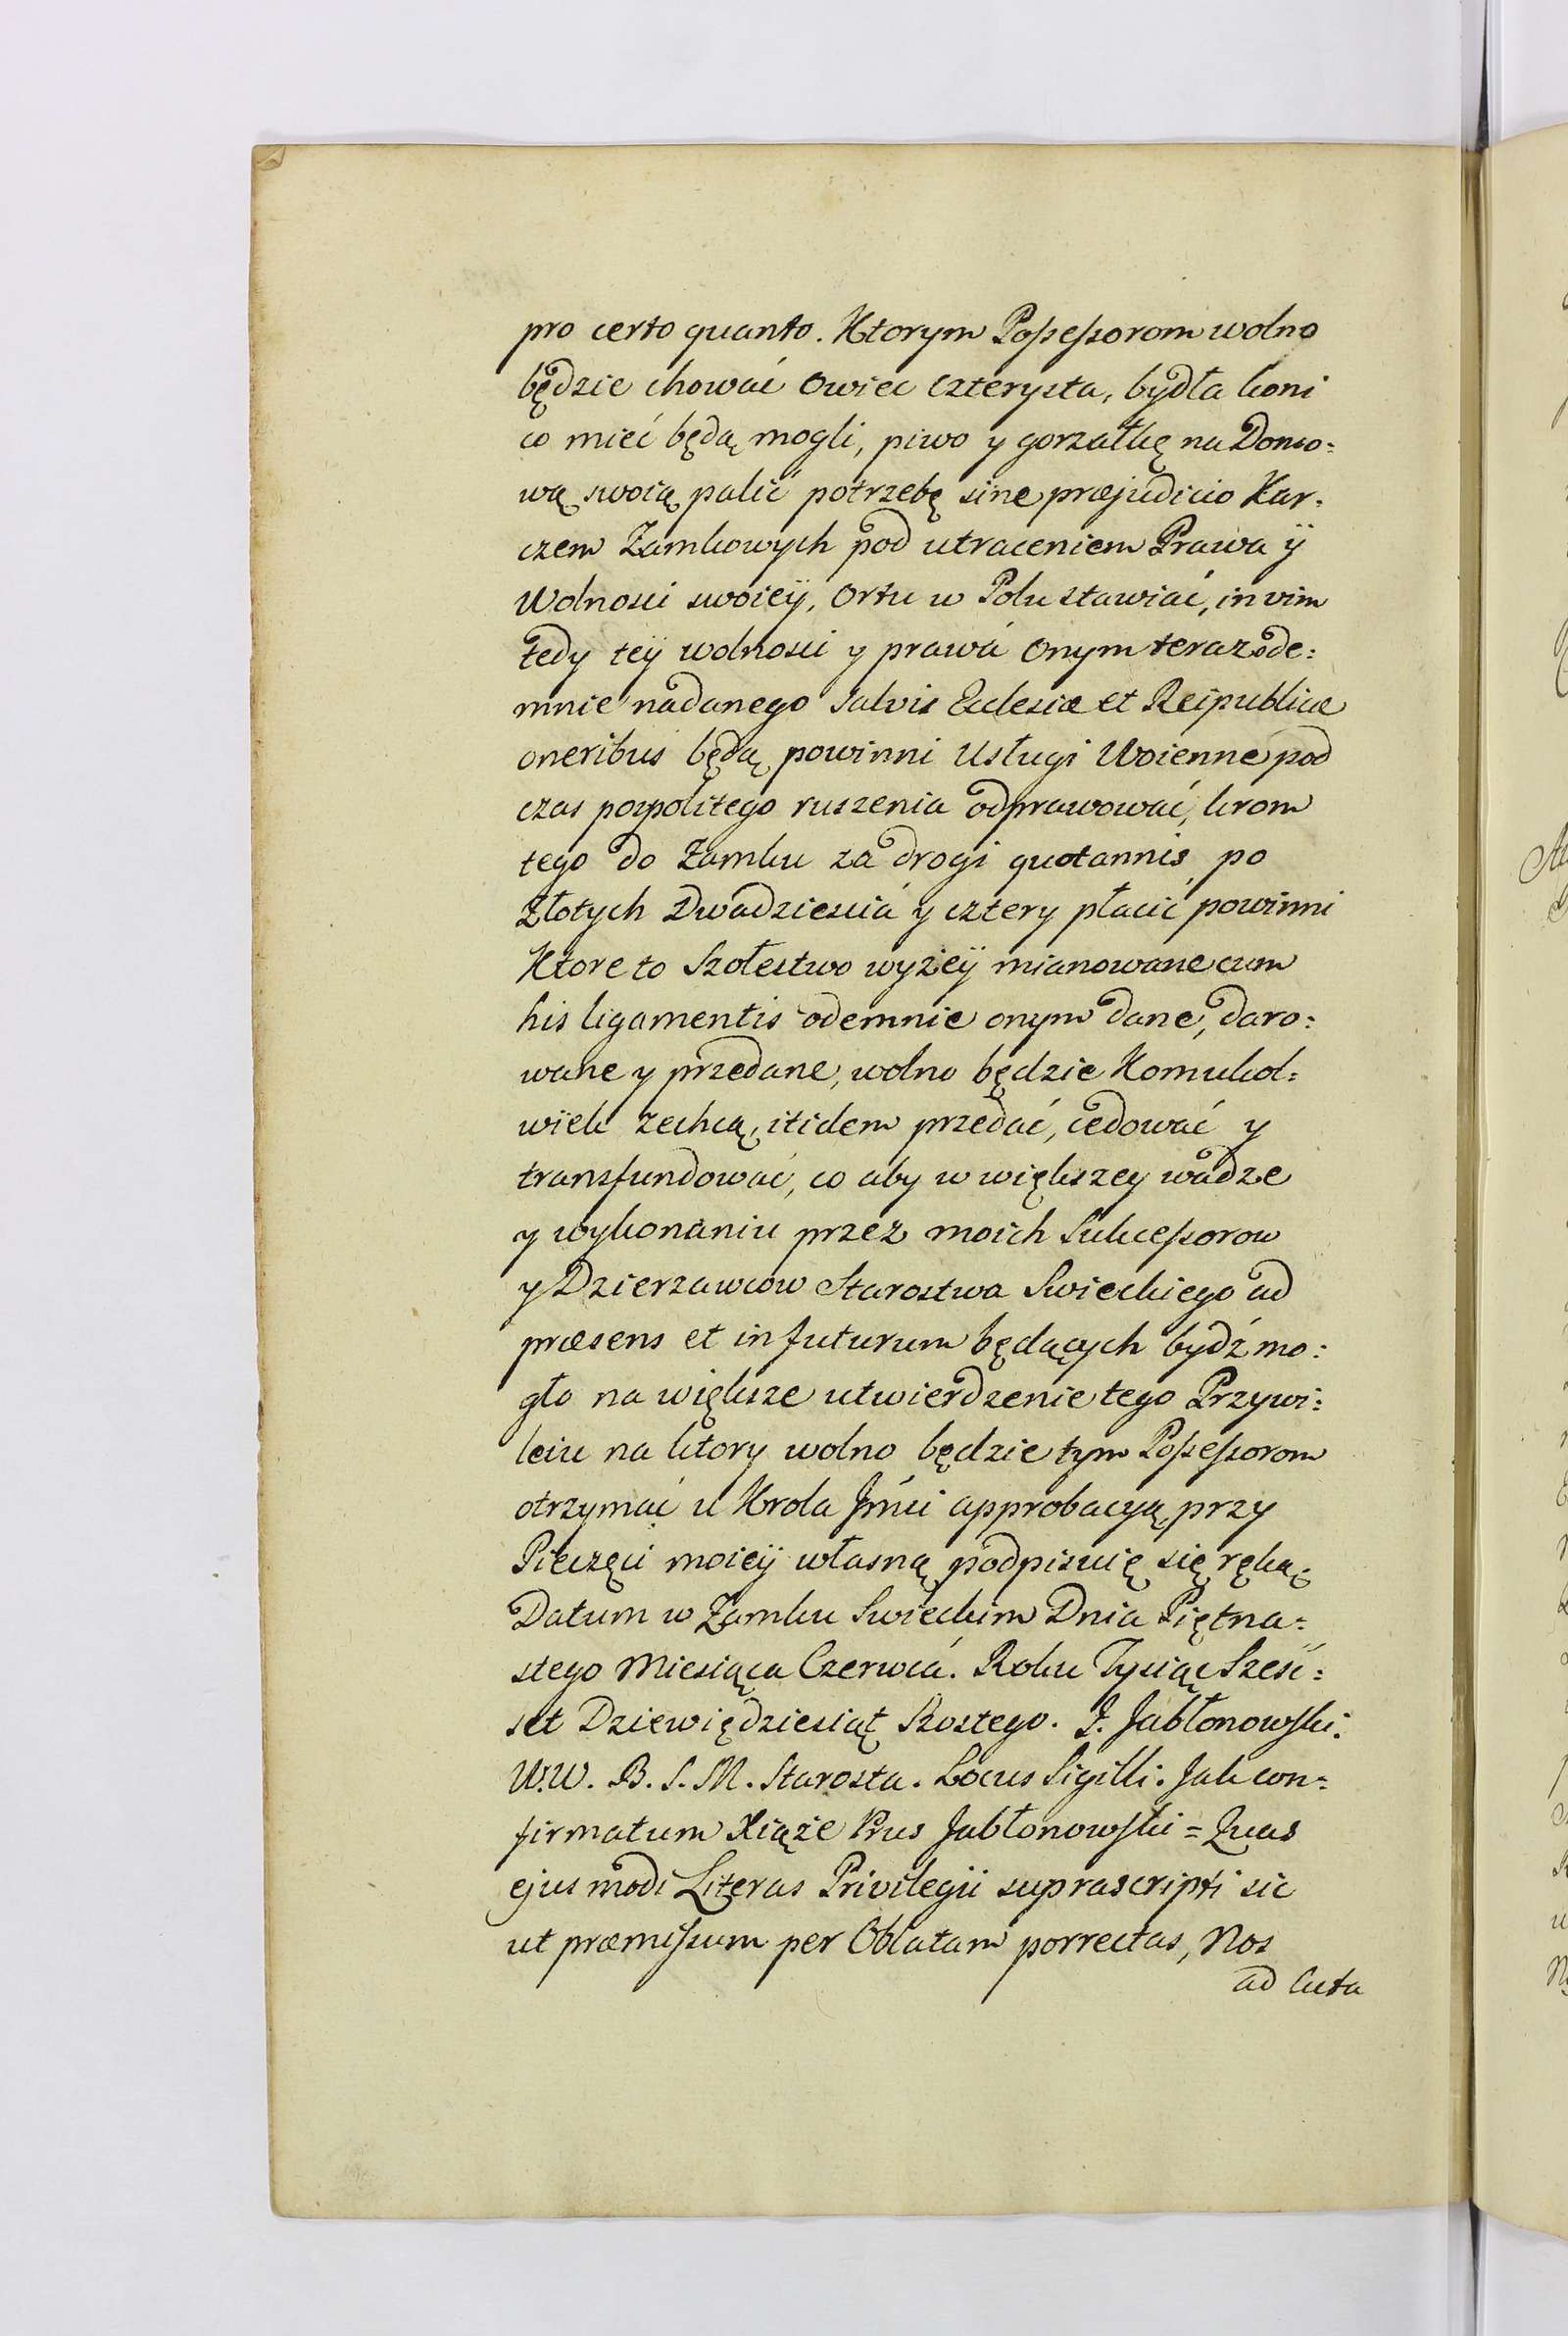 pro certo quanto. Ktorym Possessorom wolno
będzie chować Owiec czterysta, bydła koni
co mieć będą mogli, piwo y gorzałkę na Domo=
wą swoią palić potrzebę sine præjudicio Kar=
czem Zamkowych pod utraceniem Prawa ÿ
Wolnosci swoieÿ, Ortu w Polu stawiać, in vim
tedy teÿ wolnosci y prawá Onym teraz ode=
mnie nadanego salvis Eclesiæ et Reipublicæ
oneribus będą powinni Usługi Woienne pod
czas pospolitego ruszenia odprawować, krom
tego do Zamku za drogi quotannis po
Złotych Dwadziesciá y cztery płacić powinni
Ktore to Szołestwo wyżeÿ mianowane cum
his ligamentis odemnie onym dane, daro=
wane y przedane, wolno będzie Komukol=
wiek zechcą, itidem przedać, cedować y
transfundować, co aby w większey wadze
y wykonaniu przez moich Sukcessorow
y Dzierzawcow Starostwa Swieckiego ad
præsens et in futurum będących bydź mo=
gło na większe utwierdzenie tego Przywi=
leiu na ktory wolno będzie tym Possessorom
otrzymać u Krola Jmći approbacyą, przy
Pieczęci moieÿ własną podpisuię się ręką.
Datum w Zamku Swieckim Dnia Piętna=
stego Miesiąca Czerwcá. Roku Tysiąc Szesć=
set Dziewiędziesiąt Szostego. J. Jabłonowski.
W.W. B. S. M. Starosta. Locus Sigilli. Jak con=
firmatum Xiąże Prus Jabłonowski = Quas
ejusmodi Literas Privilegii suprascripti sic
ut præmissum per Oblatam porrectas, Nos
ad Acta